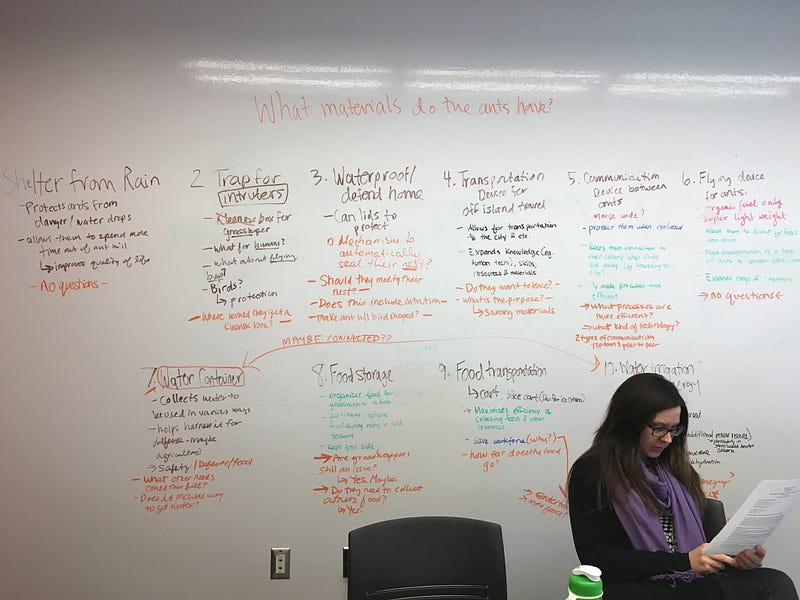 What materials do the ants have?
Shelter from Rain
- Protects ants from
danger/water drops
- allows them to spend more
time out of ant hill
↳ improve quality of life
- No questions -
2 Trap for
intruders
- Kleenex box for
grasshopper
- What for humans?
- What about flying
bugs?
- Birds?
↳ protection
- Where would they get a
Kleenex box? -
3. Waterproof/
defend home
- Can lids to
protect
○ Mechanism to
automatically
seal their nest?
- Should they modify their
nest? -
- Does this include intruders -
- Make ant hill bird shaped? -
4. Transportation
Device for
off island travel
- Allows for transportation
to the city & etc.
- Expands knowledge (eg.
human tech), skills,
resources & materials
- Do they want to leave? -
- What's the purpose? -
↳ Sourcing materials
5. Communication
Device between
ants
- Morse code?
- protect them when isolated
- Keeps them connected
to their colony when they
are away (eg traveling to
city)
- To make processes more
efficient
→ What processes are
more efficient?
→ What kind of technology?
2 types of communication
6. Flying device
for ants.
- organic fuel only
- super light weight
- Allows them to
→ no questions ←
MAYBE CONNECTED??
7. Water Container
- Collects water to
be used in various ways
- helps harness it for
defense - maybe
agriculture
→ Safety / Defense/food
- What other needs
could this fill?
- Does it include way
to get water?
8. Food storage
- organize food for
- keeps food safe
→ Are grasshoppers
still an issue?
↳ Yes. Maybe.
→ Do they need to collect
others food?
↳ Yes.
9. Food transportation
↳ cart, bike cart (like for ice cream)
- Maximizes efficiency of
collecting food & other
resources.
- save workforce (why?)
- how far does the food
go?
Water irrigation
energy
dehydration